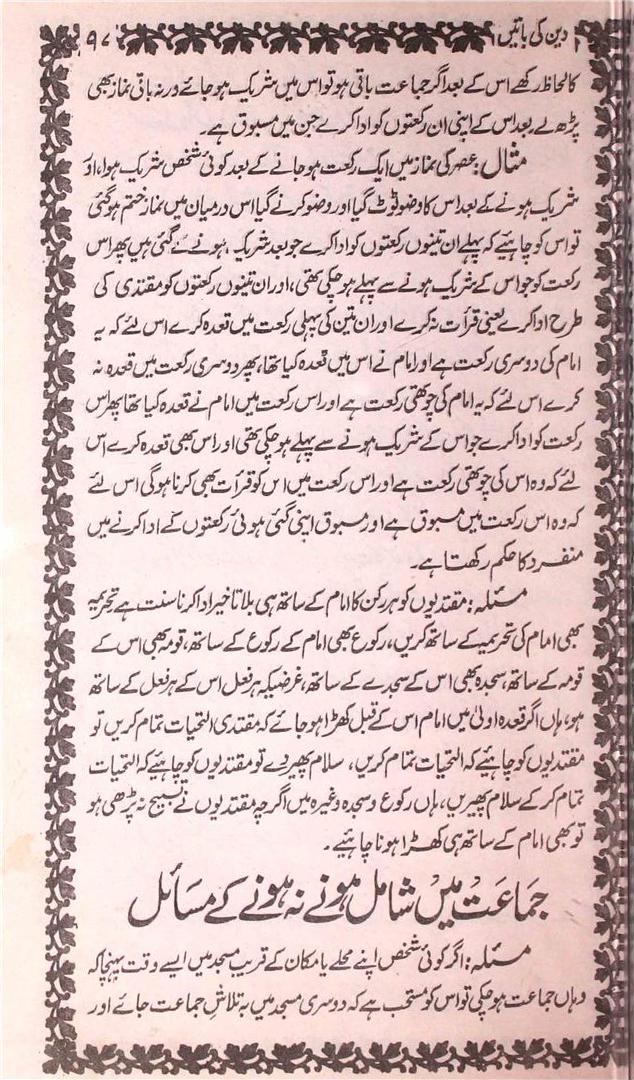 دین کی باتیں ۹۷
کا لحاظ رکھے اس کے بعد اگر جماعت باقی ہو تو اس میں شریک ہو جائے ورنہ باقی نماز بھی
پڑھ لے بعد اس کے اپنی ان رکعتوں کو ادا کرے جن میں مسبوق ہے۔
مثال: عصر کی نماز میں ایک رکعت ہو جانے کے بعد کوئی شخص شریک ہوا، اور
شریک ہونے کے بعد اس کا وضو ٹوٹ گیا اور وضو کرنے گیا اس درمیان میں نماز ختم ہو گئی
تو اس کو چاہیئے کہ پہلے ان تینوں رکعتوں کو ادا کرے جو بعد شریک ہونے کے گئی ہیں پھر اس
رکعت کو جو اس کے شریک ہونے سے پہلے ہو چکی تھی، اور ان تینوں رکعتوں کو مقتدی کی
طرح ادا کرے یعنی قرأت نہ کرے اور ان تین کی پہلی رکعت میں قعدہ کرے اس لئے کہ یہ
امام کی دوسری رکعت ہے اور امام نے اس میں قعدہ کیا تھا، پھر دوسری رکعت میں قعدہ نہ
کرے اس لئے کہ یہ امام کی چوتھی رکعت ہے اور اس رکعت میں امام نے قعدہ کیا تھا پھر اس
رکعت کو ادا کرے جو اس کے شریک ہونے سے پہلے ہو چکی تھی اور اس بھی قعدہ کرے اس
لئے کہ وہ اس کی چوتھی رکعت ہے اور اس رکعت میں اس کو قرأت بھی کرنا ہوگی اس لئے
کہ وہ اس رکعت میں مسبوق ہے اور مسبوق اپنی گئی ہوئی رکعتوں کے ادا کرنے میں
منفرد کا حکم رکھتا ہے۔
مسئلہ: مقتدیوں کو ہر رکن کا امام کے ساتھ ہی بلا تاخیر ادا کرنا سنت ہے تحریمہ
بھی امام کی تحریمہ کے ساتھ کریں، رکوع بھی امام کے رکوع کے ساتھ، قومہ بھی اس کے
قومہ کے ساتھ، سجدہ بھی اس کے سجدے کے ساتھ، غرضیکہ ہر فعل اس کے ہر فعل کے ساتھ
ہو، ہاں اگر قعدہ اولیٰ میں امام اس کے قبل کھڑا ہو جائے کہ مقتدی التحیات تمام کریں تو
مقتدیوں کو چاہیئے کہ التحیات تمام کریں، سلام پھیر دے تو مقتدیوں کو چاہیئے کہ التحیات
تمام کر کے سلام پھیریں، ہاں رکوع و سجدہ وغیرہ میں اگرچہ مقتدیوں نے تسبیح نہ پڑھی ہو
تو بھی امام کے ساتھ ہی کھڑا ہونا چاہیئے۔
جماعت میں شامل ہونے نہ ہونے کے مسائل
مسئلہ: اگر کوئی شخص اپنے محلے یا مکان کے قریب مسجد میں ایسے وقت پہنچا کہ
وہاں جماعت ہو چکی تو اس کو مستحب ہے کہ دوسری مسجد میں بہ تلاش جماعت جائے اور